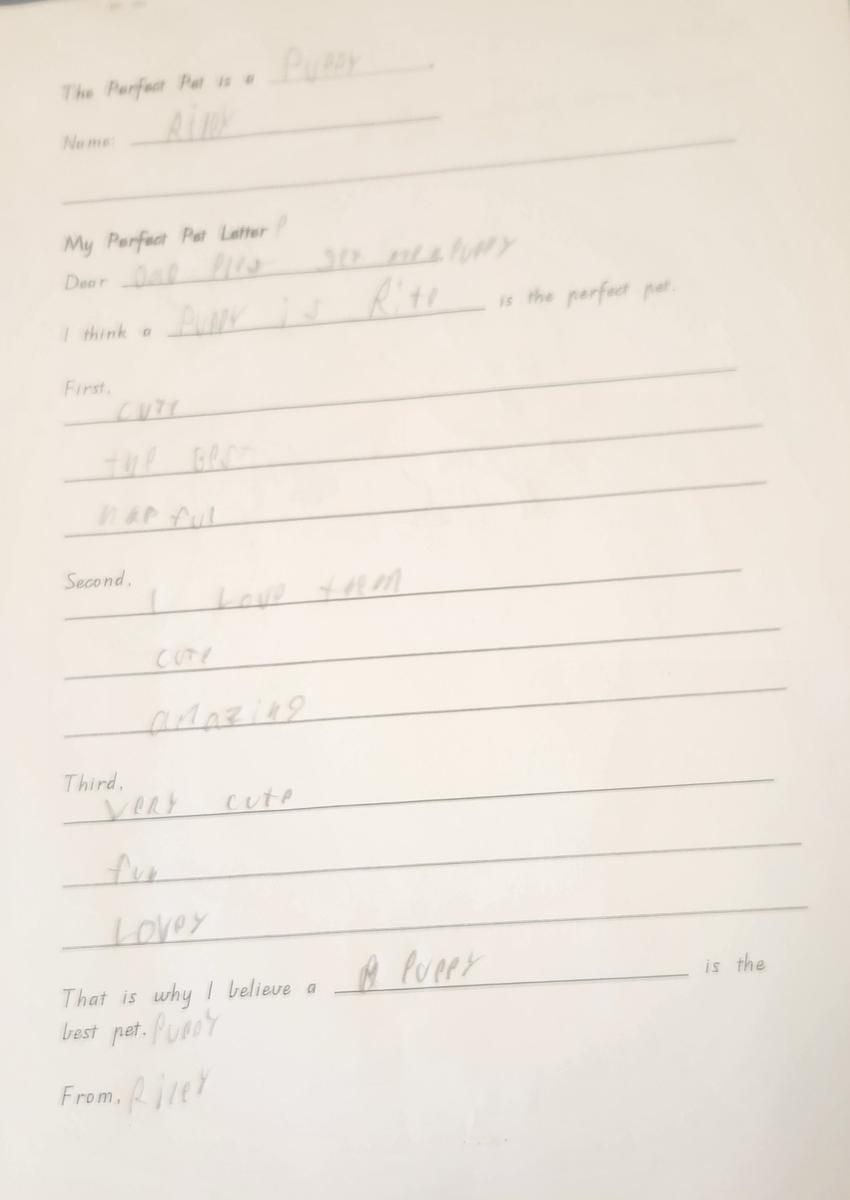 The Perfect Pet is a Puppy.
Name: Riley
My Perfect Pet Letter
Dear Dad Ples get me a Puppy
I think a Puppy is Rite is the perfect pet.
First,
cute
the Best
hapful
Second,
I Love them
cute
amazing
Third,
Very cute
fun
Lovey
That is why I believe a A Puppy is the
best pet. Puppy
From, Riley